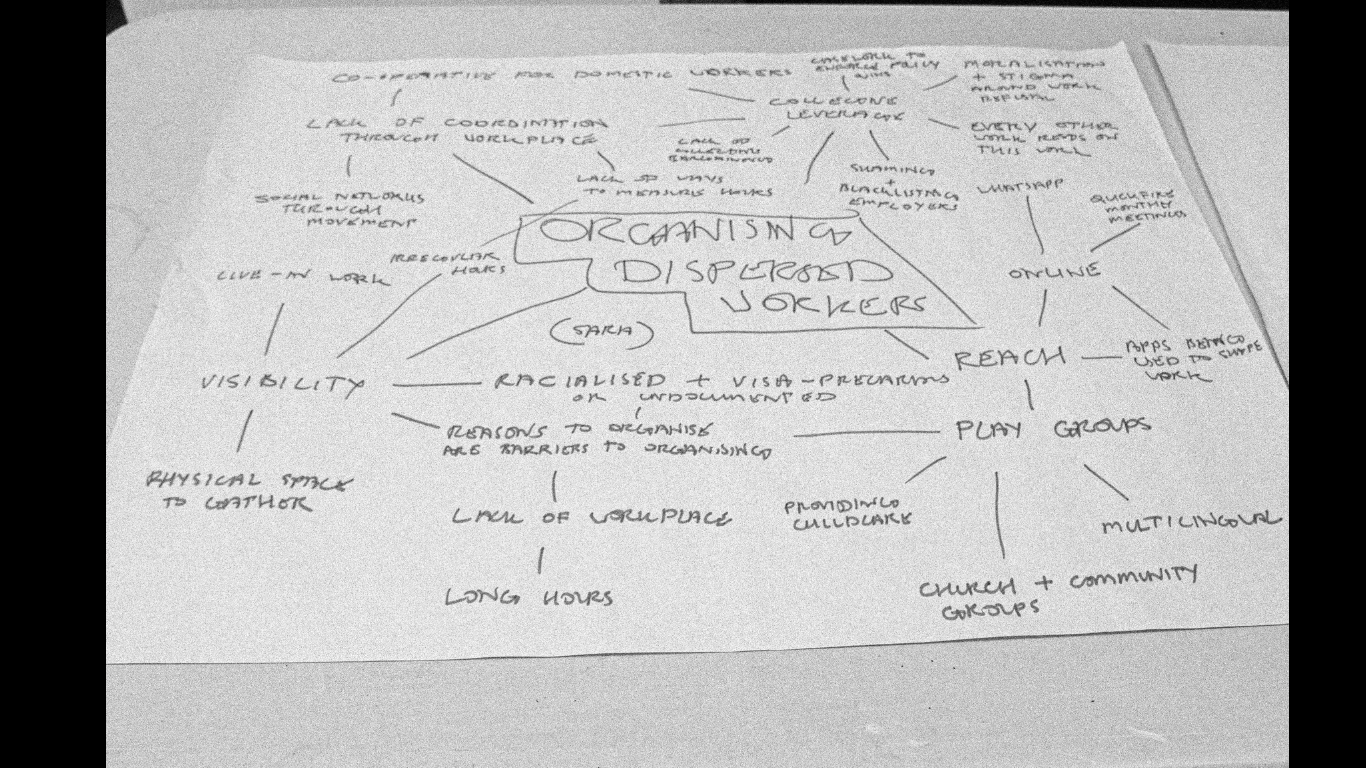 CO-OPERATIVE FOR DOMESTIC WORKERS
CASEWORK TO
ENFORCE POLICY
WINS
MORALISATION
+ STIGMA
AROUND WORK
REFUSAL
COLLECTIVE
LEVERAGE
LACK OF COORDINATION
THROUGH WORKPLACE
EVERY OTHER
WORK RELIES ON
THIS WORK
LACK OF
COLLECTIVE
BARGAINING
LACK OF WAYS
TO MEASURE HOURS
SHAMING
+
BLACKLISTING
EMPLOYERS
WHATSAPP
QUICKFIRE
MONTHLY
MEETINGS
SOCIAL NETWORKS
THROUGH
MOVEMENT
ORGANISING
DISPERSED
WORKERS
(SARA)
LIVE-IN WORK
IRREGULAR
HOURS
ONLINE
REACH
APPS BEING
USED TO SHAPE
WORK
VISIBILITY
RACIALISED + VISA-PRECARIOUS
OR UNDOCUMENTED
REASONS TO ORGANISE
ARE BARRIERS TO ORGANISING
PLAY GROUPS
PHYSICAL SPACE
TO GATHER
LACK OF WORKPLACE
PROVIDING
CHILDCARE
MULTILINGUAL
LONG HOURS
CHURCH + COMMUNITY
GROUPS